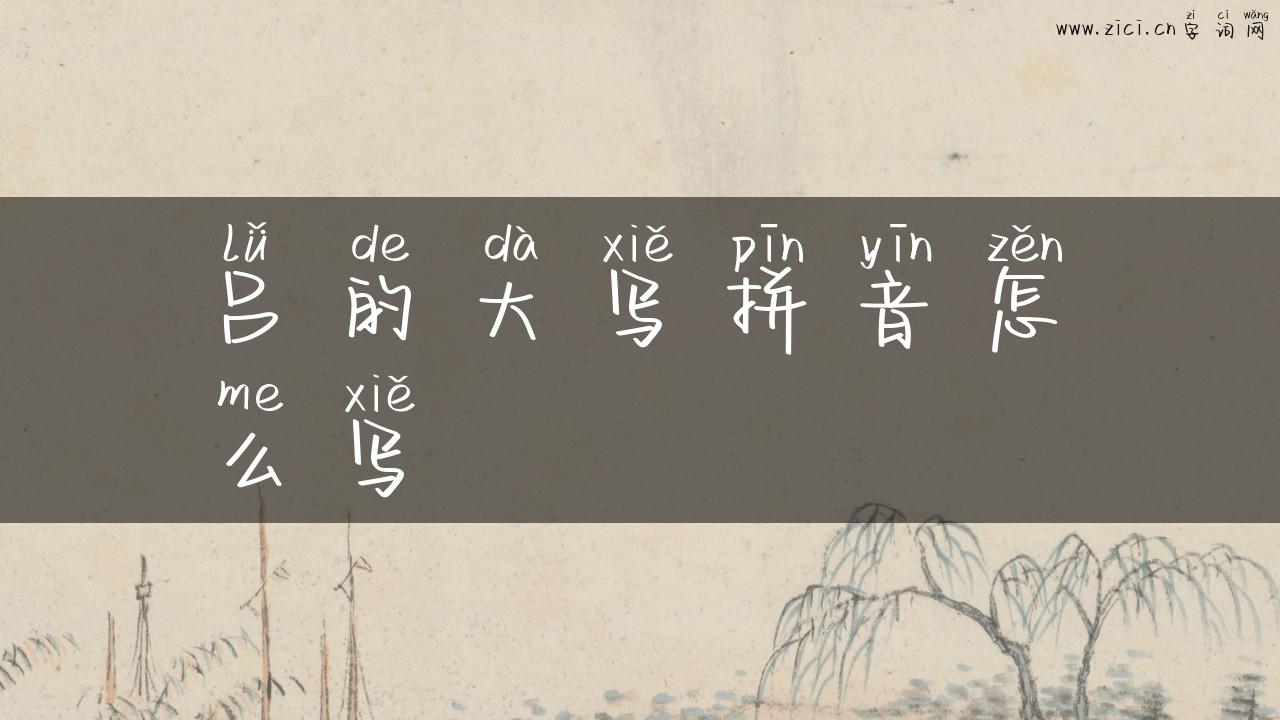 zì cí wǎng
www.zici.cn 字 词 网
lǚ de dà xiě pīn yīn zěn
吕 的 大 写 拼 音 怎
me xiě
么 写